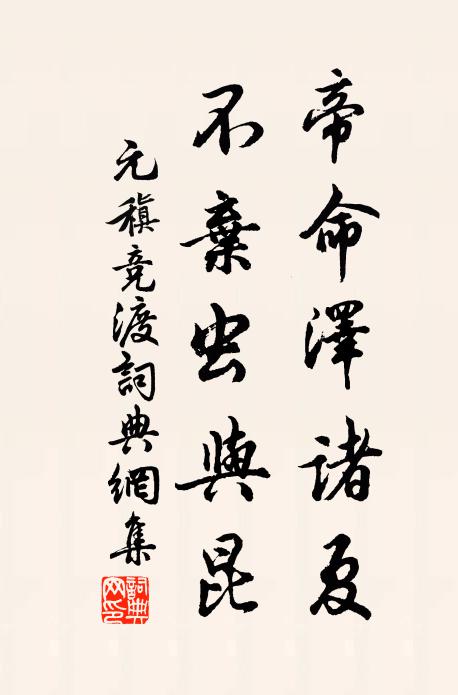 帝命澤諸夏
不棄虫與昆
元稹競渡詞典網集
詞典网印